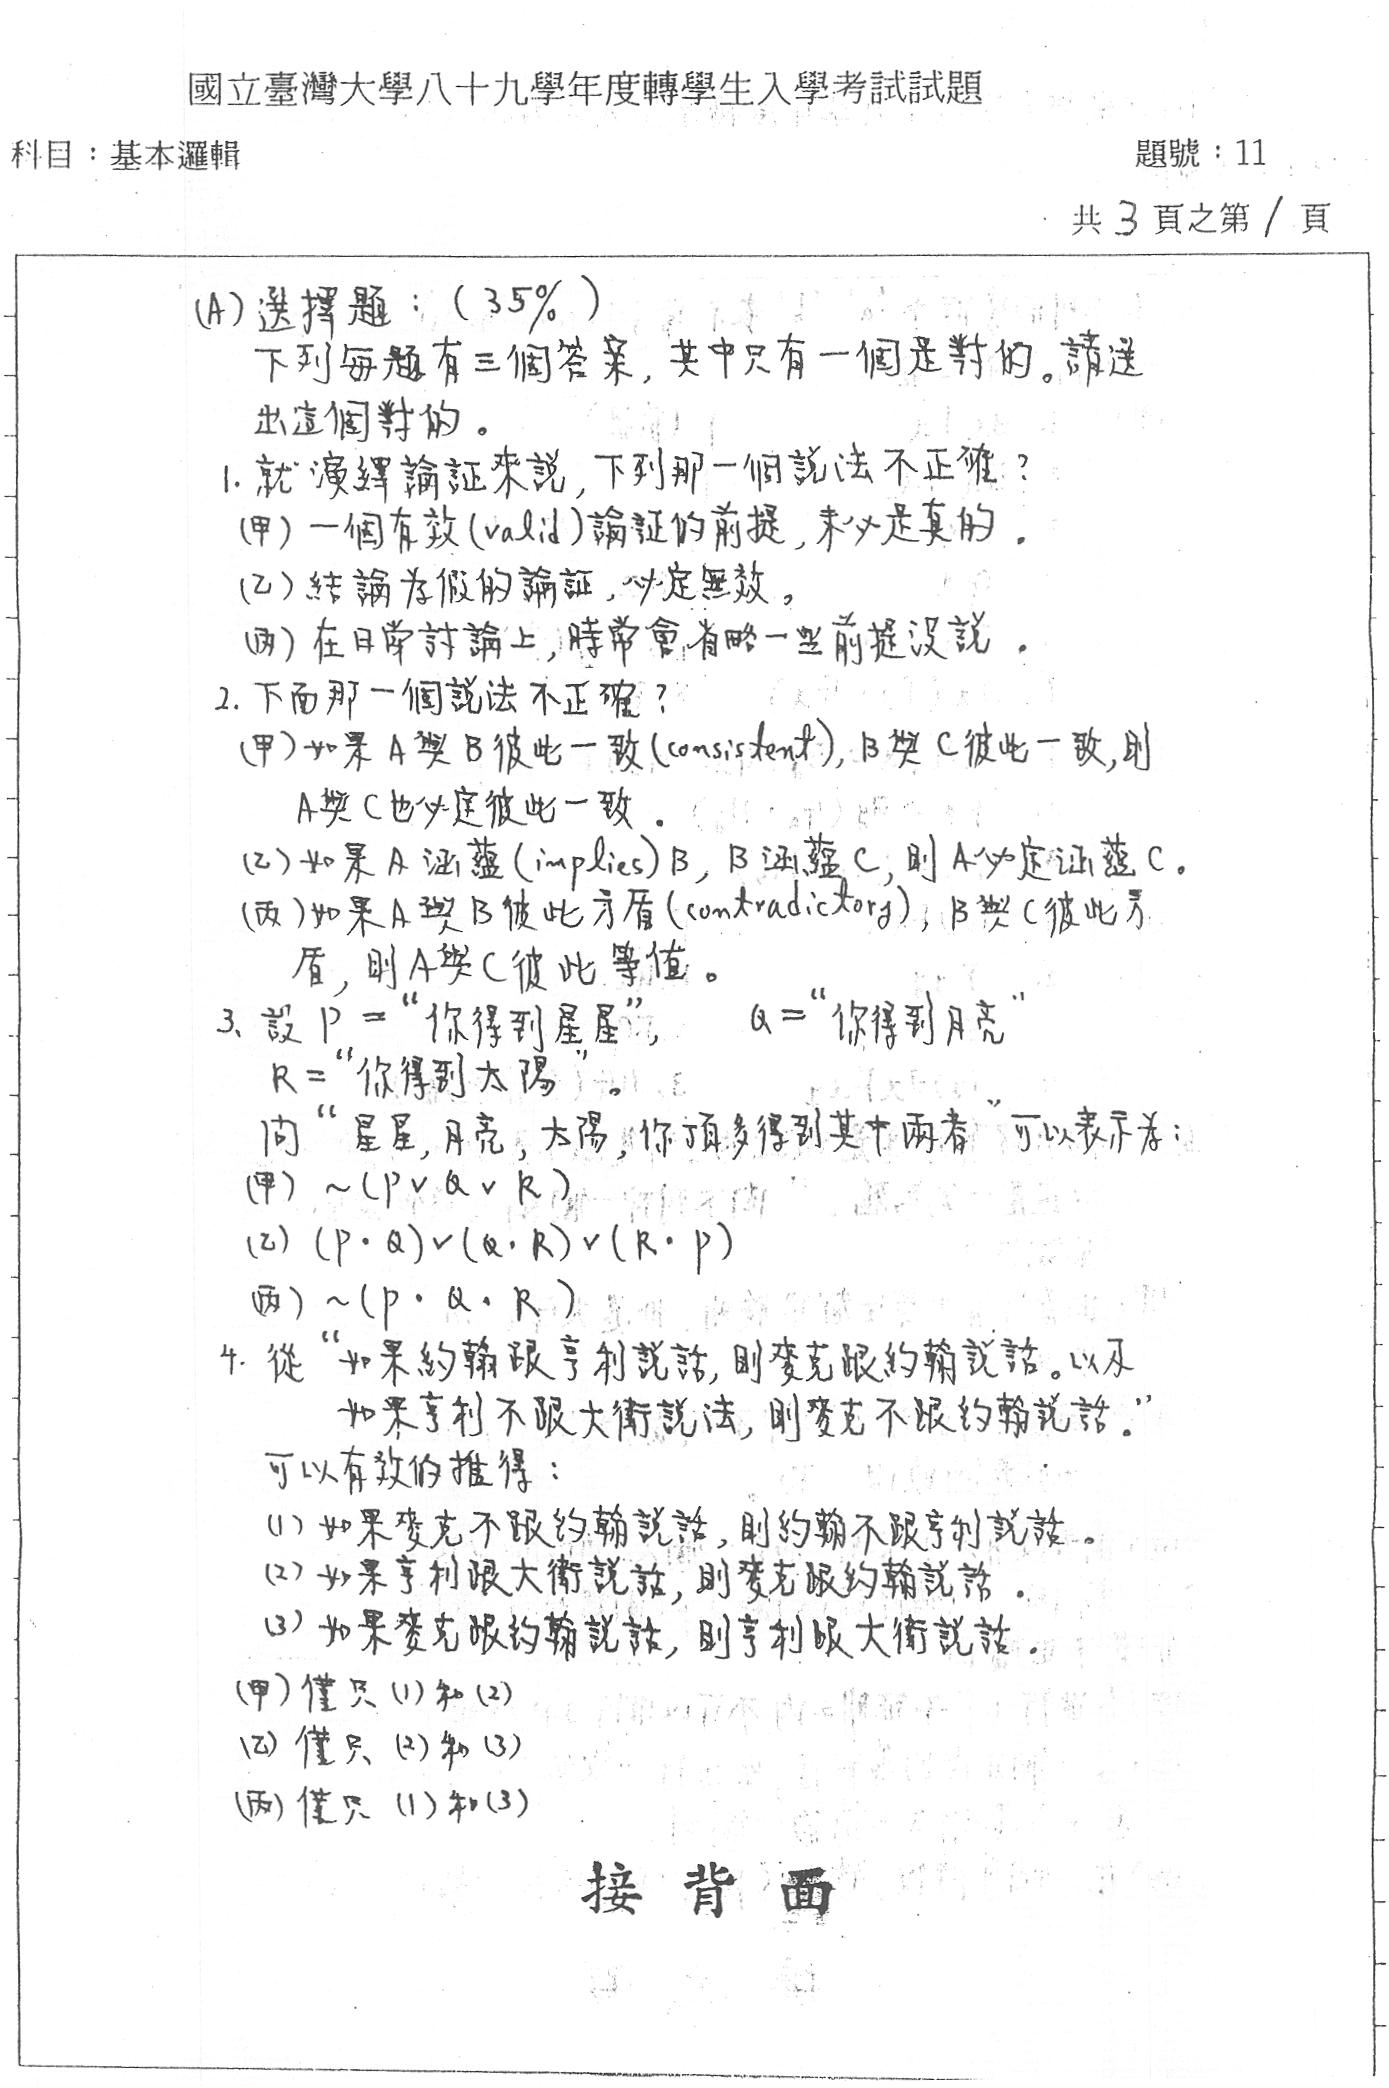 國立臺灣大學八十九學年度轉學生入學考試試題
科目：基本邏輯
題號：11
共 3 頁之第 1 頁
(A) 選擇題：(35%)
下列每題有三個答案, 其中只有一個是對的。請選
出這個對的。
1. 就演繹論証來説, 下列那一個説法不正確？
(甲) 一個有效(valid)論証的前提, 未必是真的。
(乙) 結論為假的論証, 必定無效。
(丙) 在日常討論上, 時常會省略一些前提没説。
2. 下面那一個説法不正確？
(甲) 如果 A 與 B 彼此一致(consistent), B 與 C 彼此一致, 則
A與C也必定彼此一致。
(乙) 如果 A 涵蘊(implies) B, B 涵蘊 C, 則 A 必定涵蘊 C。
(丙) 如果 A 與 B 彼此矛盾(contradictory), B 與 C 彼此矛
盾, 則 A與C 彼此等值。
3. 設 P = “你得到星星”, Q = “你得到月亮”
R = “你得到太陽”。
問 “星星, 月亮, 太陽, 你頂多得到其中兩者” 可以表示為：
(甲) ~(P∨Q∨R)
(乙) (P·Q)∨(Q·R)∨(R·P)
(丙) ~(P·Q·R)
4. 從 “如果約翰跟亨利説話, 則麥克跟約翰説話。以及
如果亨利不跟大衛説法, 則麥克不跟約翰説話。”
可以有效的推得：
(1) 如果麥克不跟約翰説話, 則約翰不跟亨利説話。
(2) 如果亨利跟大衛説話, 則麥克跟約翰説話。
(3) 如果麥克跟約翰説話, 則亨利跟大衛説話。
(甲) 僅只 (1) 和 (2)
(乙) 僅只 (2) 和 (3)
(丙) 僅只 (1) 和 (3)
接背面